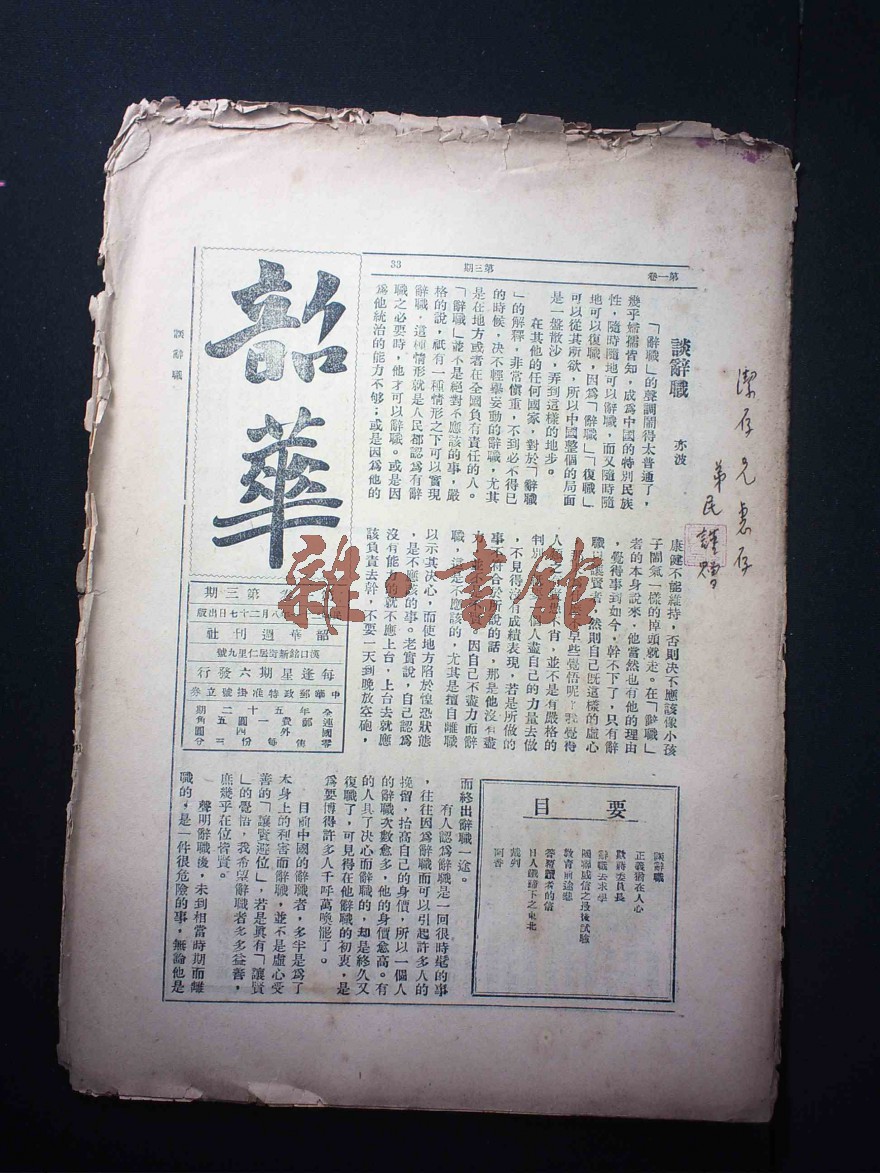 第一卷
第三期
33
談辭職
亦波
「辭職」的聲調鬧得太普通了，
幾乎婦孺皆知，成為中國的特別民族
性，隨時隨地可以辭職，而又隨時隨
地可以復職，因為「辭職」「復職」
可以從其所欲，所以中國整個的局面
是一盤散沙，弄到這樣的地步。
在其他的任何國家，對於「辭職
」的解釋，非常慎重，不到必不得已
的時候，决不輕舉妄動的辭職，尤其
是在地方或者在全國負有責任的人。
「辭職」誰不是絕對不應該的事，嚴
格的說，祇有一種情形之下可以實現
辭職，這種情形就是人民都認為有辭
職之必要時，他才可以辭職。或是因
為他統治的能力不够；或是因為他的
康健不能維持，否則决不應該像小孩
子鬧氣一樣的掉頭就走。在「辭職」
者的本身說來，他當然也有他的理由
，覺得事到如今，幹不下了，只有辭
職以讓賢者，然則自己既這樣的虛心
早些覺悟呢？我覺得
人
不肖，並不是有嚴格的
判別
個人盡自己的力量去做
，不見得沒有成績表現，若是所做的
事不符合於所說的話，那是他沒有盡
力，並不
不賢。因自己不盡力而辭
職，這是不應該的，尤其是擅自離職
以示其决心，而使地方陷於惶恐狀態
，是不應該的事。老實說，自己認為
沒有能力的就不應上台，上台去就應
該負責去幹，不要一天到晚放空砲，
而終出辭職一途。
有人認為辭職是一回很時髦的事
，往往因為辭職而可以引起許多人的
挽留，抬高自己的身價，所以一個人
的辭職次數愈多，他的身價愈高。有
的人具了决心而辭職的，却是終久又
復職了，可見得在他辭職的初衷，是
為要博得許多人千呼萬喚罷了。
目前中國的辭職者，多半是為了
本身上的利害而辭職，並不是虛心受
善的「讓賢避位」，若是眞有「讓賢
」的覺悟，我希望辭職者多多益善，
庶幾乎在位皆賢。
聲明辭職後，未到相當時期而離
職的，是一件很危險的事，無論他是
要目
談辭職
正義猶在人心
歎蔣委員長
辭職去求學
國聯威信之最後試驗
教育前途悲
答覆讀者的信
日人鐵蹄下之東北
裁判
阿香
韶華
第三期
八月二十七日出版
韶華週刊社
漢口銘新街居仁里九號
每逢星期六發行
中華郵政特准掛號立券
全年五十二期
連郵費一元五角
國外四圓
零售每份三分
談辭職
潔存兄惠存
弟民謹贈
雜·書館